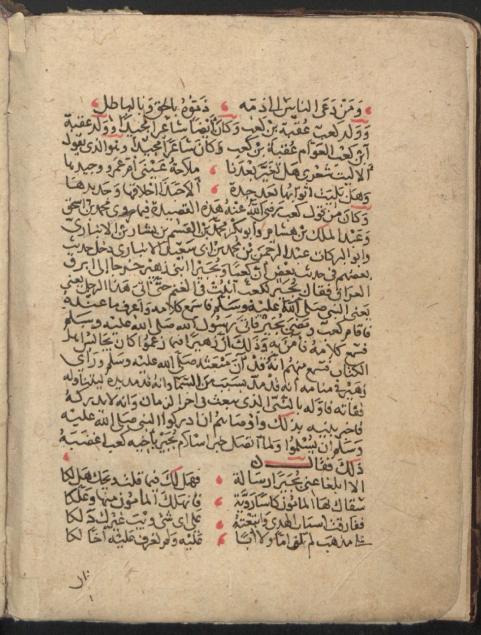 ومن دعى الناس الى ذمه ذموه بالحق وبالباطل
وولد لكعب عقبة بن كعب وكان ايضا شاعرا مجيدا وولد عقبة
ابن كعب العوام عقبة بن كعب وكان شاعرا مجيدا وهو الذي يقول
الا ليت شعري هل تغير بعدنا ملاحة عيني ام عمرو وجيدها
وهل بليت اثوابها بعد جدة الا حبذا اخلاقها وجديدها
وكان من قول كعب رضي الله عنه هذه القصيدة فيما روى محمد بن اسحق
وعبد الملك بن هشام وابو بكر محمد بن القسم بن بشار بن الانباري
وابو البركات عبد الرحمن بن محمد بن ابي سعيد الانباري دخل حديث
بعضهم في حديث بعض ان كعبا وبجيرا ابني زهير خرجا الى ابرق
العراق فقال بجير لكعب اثبت في الغنم حتى اتي هذا الرجل يعني
يعني النبي صلى الله عليه وسلم فاسمع كلامه واعرف ما عنده
فاقام كعب ومضى بجير فاتى رسول الله صلى الله عليه وسلم
فسمع كلامه فامن به وذلك ان زهيرا فيما زعموا كان يجالس اهل
الكتاب فسمع منهم انه قد آن مبعثه صلى الله عليه وسلم وراى
زهير في منامه انه قد مد بسبب من السماء وانه قد مد يده ليتناوله
ففاته فاوله بالنبي الذي يبعث في اخر الزمان وانه لا يدركه
فاخبر بنيه بذلك واوصاهم ان ادركوا النبي صلى الله عليه
وسلم ان يسلموا ولما اتصل خبر اسلام بجير باخيه كعب اغضبه
ذلك فقال
الا ابلغا عني بجيرا رسالة فهل لك فيما قلت ويحك هل لكا
سقاك بها المامون كاسا روية فانهلك المامون منها وعلكا
ففارقت اسباب الهدى واتبعته على اي شيء ويب غيرك دلكا
على مذهب لم تلف اما ولا ابا عليه ولم تعرف عليه اخا لكا